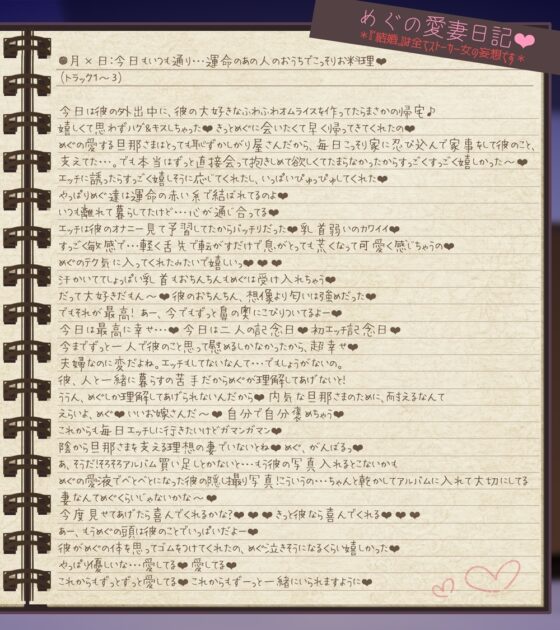 めぐの愛妻日記❤
＊『結婚』は全てストーカー女の妄想です＊
●月×日:今日もいつも通り…運命のあの人のおうちでこっそりお料理❤
(トラック1～3)
今日は彼の外出中に、彼の大好きなふわふわオムライスを作ってたらまさかの帰宅♪
嬉しくて思わずハグ&キスしちゃった❤きっとめぐに会いたくて早く帰ってきてくれたの❤
めぐの愛する旦那さまはとっても恥ずかしがり屋さんだから、毎日こっそ家に忍び込んで家事をして彼のこと、
支えてた…。でも本当はずっと直接会って抱きしめて欲しくてたまらなかったからすっごくすっごく嬉しかった～❤
エッチに誘ったらすっごく嬉しそうに応じてくれたし、いっぱいぴゅっぴゅしてくれた❤
やっぱりめぐ達は運命の赤い糸で結ばれてるのよ❤
いつも離れて暮らしてたけど…心が通じ合ってる❤
エッチは彼のオナニー見て予習してたからバッチリだった❤乳首弱いのカワイイ❤
すっごく敏感で…軽く舌先で転がすだけで息がとっても荒くなって可愛く感じちゃうの❤
めぐのテク気に入ってくれたみたいで嬉しいっ❤❤❤
汗かいててしょっぱい乳首もおちんちんもめぐは受け入れちゃう❤
だって大好きだもん～❤彼のおちんちん、想像より匂いは強めだった❤
でもそれが最高！あー、今でもずっと鼻の奥にこびりついてるよー❤
今日は最高に幸せ…❤今日は二人の記念日❤初エッチ記念日❤
今までずっと一人で彼のこと思って慰めるしかなかったから、超幸せ❤
夫婦なのに変だよね。エッチもしてないなんて…でもしょうがないの。
彼、人と一緒に暮らすの苦手だからめぐが理解してあげないと!
ううん、めぐしか理解してあげられないんだから❤内気な旦那さまのために、耐えるなんて
えらいよ、めぐ❤いいお嫁さんだ～❤自分で自分褒めちゃう❤
これからも毎日エッチしに行きたいけどガマンガマン❤
陰から旦那さまを支える理想の妻でいないとね❤めぐ、がんばるっ❤
あ、そうだ!そろそろアルバム買い足しとかないと…もう彼の写真入れるとこないかも
めぐの愛液でべとべとになった彼の隠し撮り写真!こういうの…ちゃんと乾かしてアルバムに入れて大切にしてる
妻なんてめぐくらいじゃないかな～❤
今度見せてあげたら喜んでくれるかな?❤❤❤きっと彼なら喜んでくれる❤❤❤
あー、もうめぐの頭は彼のことでいっぱいだよー❤
彼がめぐの体を思ってゴムをつけてくれたの、めぐ泣きそうになるくらい嬉しかった❤
やっぱり優しいな…愛してる❤愛してる❤
これからもずっとずっと愛してる❤これからもずーっと一緒にいられますように❤